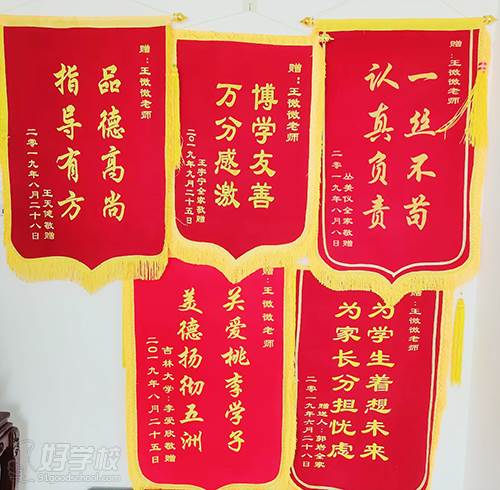 赠：王微微老师
品德高尚
指导有方
王天健敬赠
二零一九年八月二十八日
赠：王微微老师
博学友善
万分感激
王宇宁全家敬赠
二0一九年九月二十五日
赠：王微微老师
一丝不苟
认真负责
丛美仪全家敬赠
二零一九年八月八日
赠：王微微老师
关爱桃李学子
美德扬彻五洲
吉林大学：李爱欣敬赠
二0一九年八月二十五日
赠：王微微老师
为学生着想未来
为家长分担忧虑
赠送人：郭岩全家
二零一九年六月二十八日
好学校
91goodschool.com